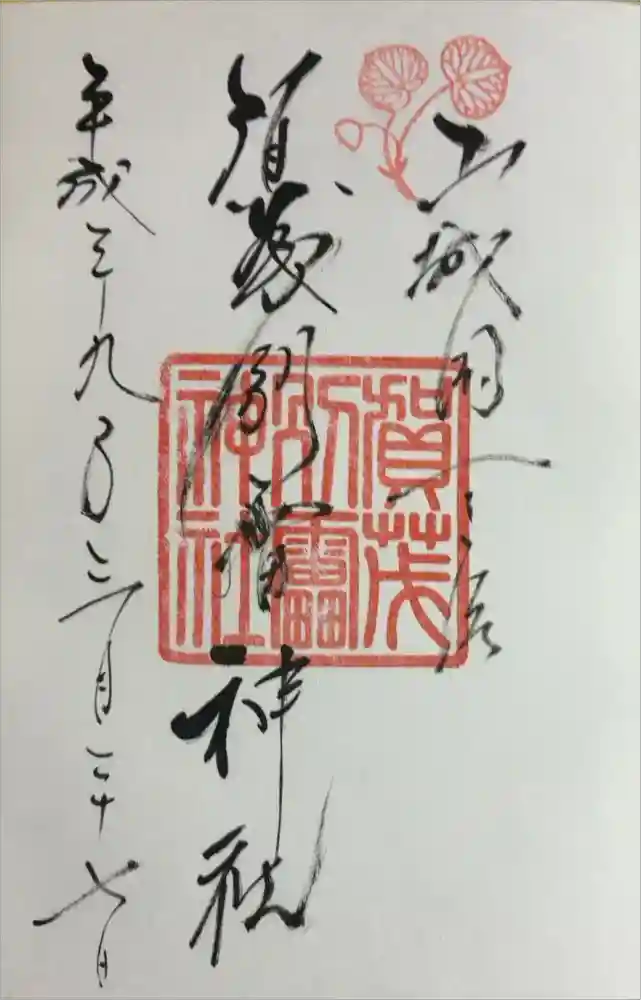 山城國一之宮
賀茂別雷神社
平成二十九年十二月二十七日
賀茂
別雷
神社